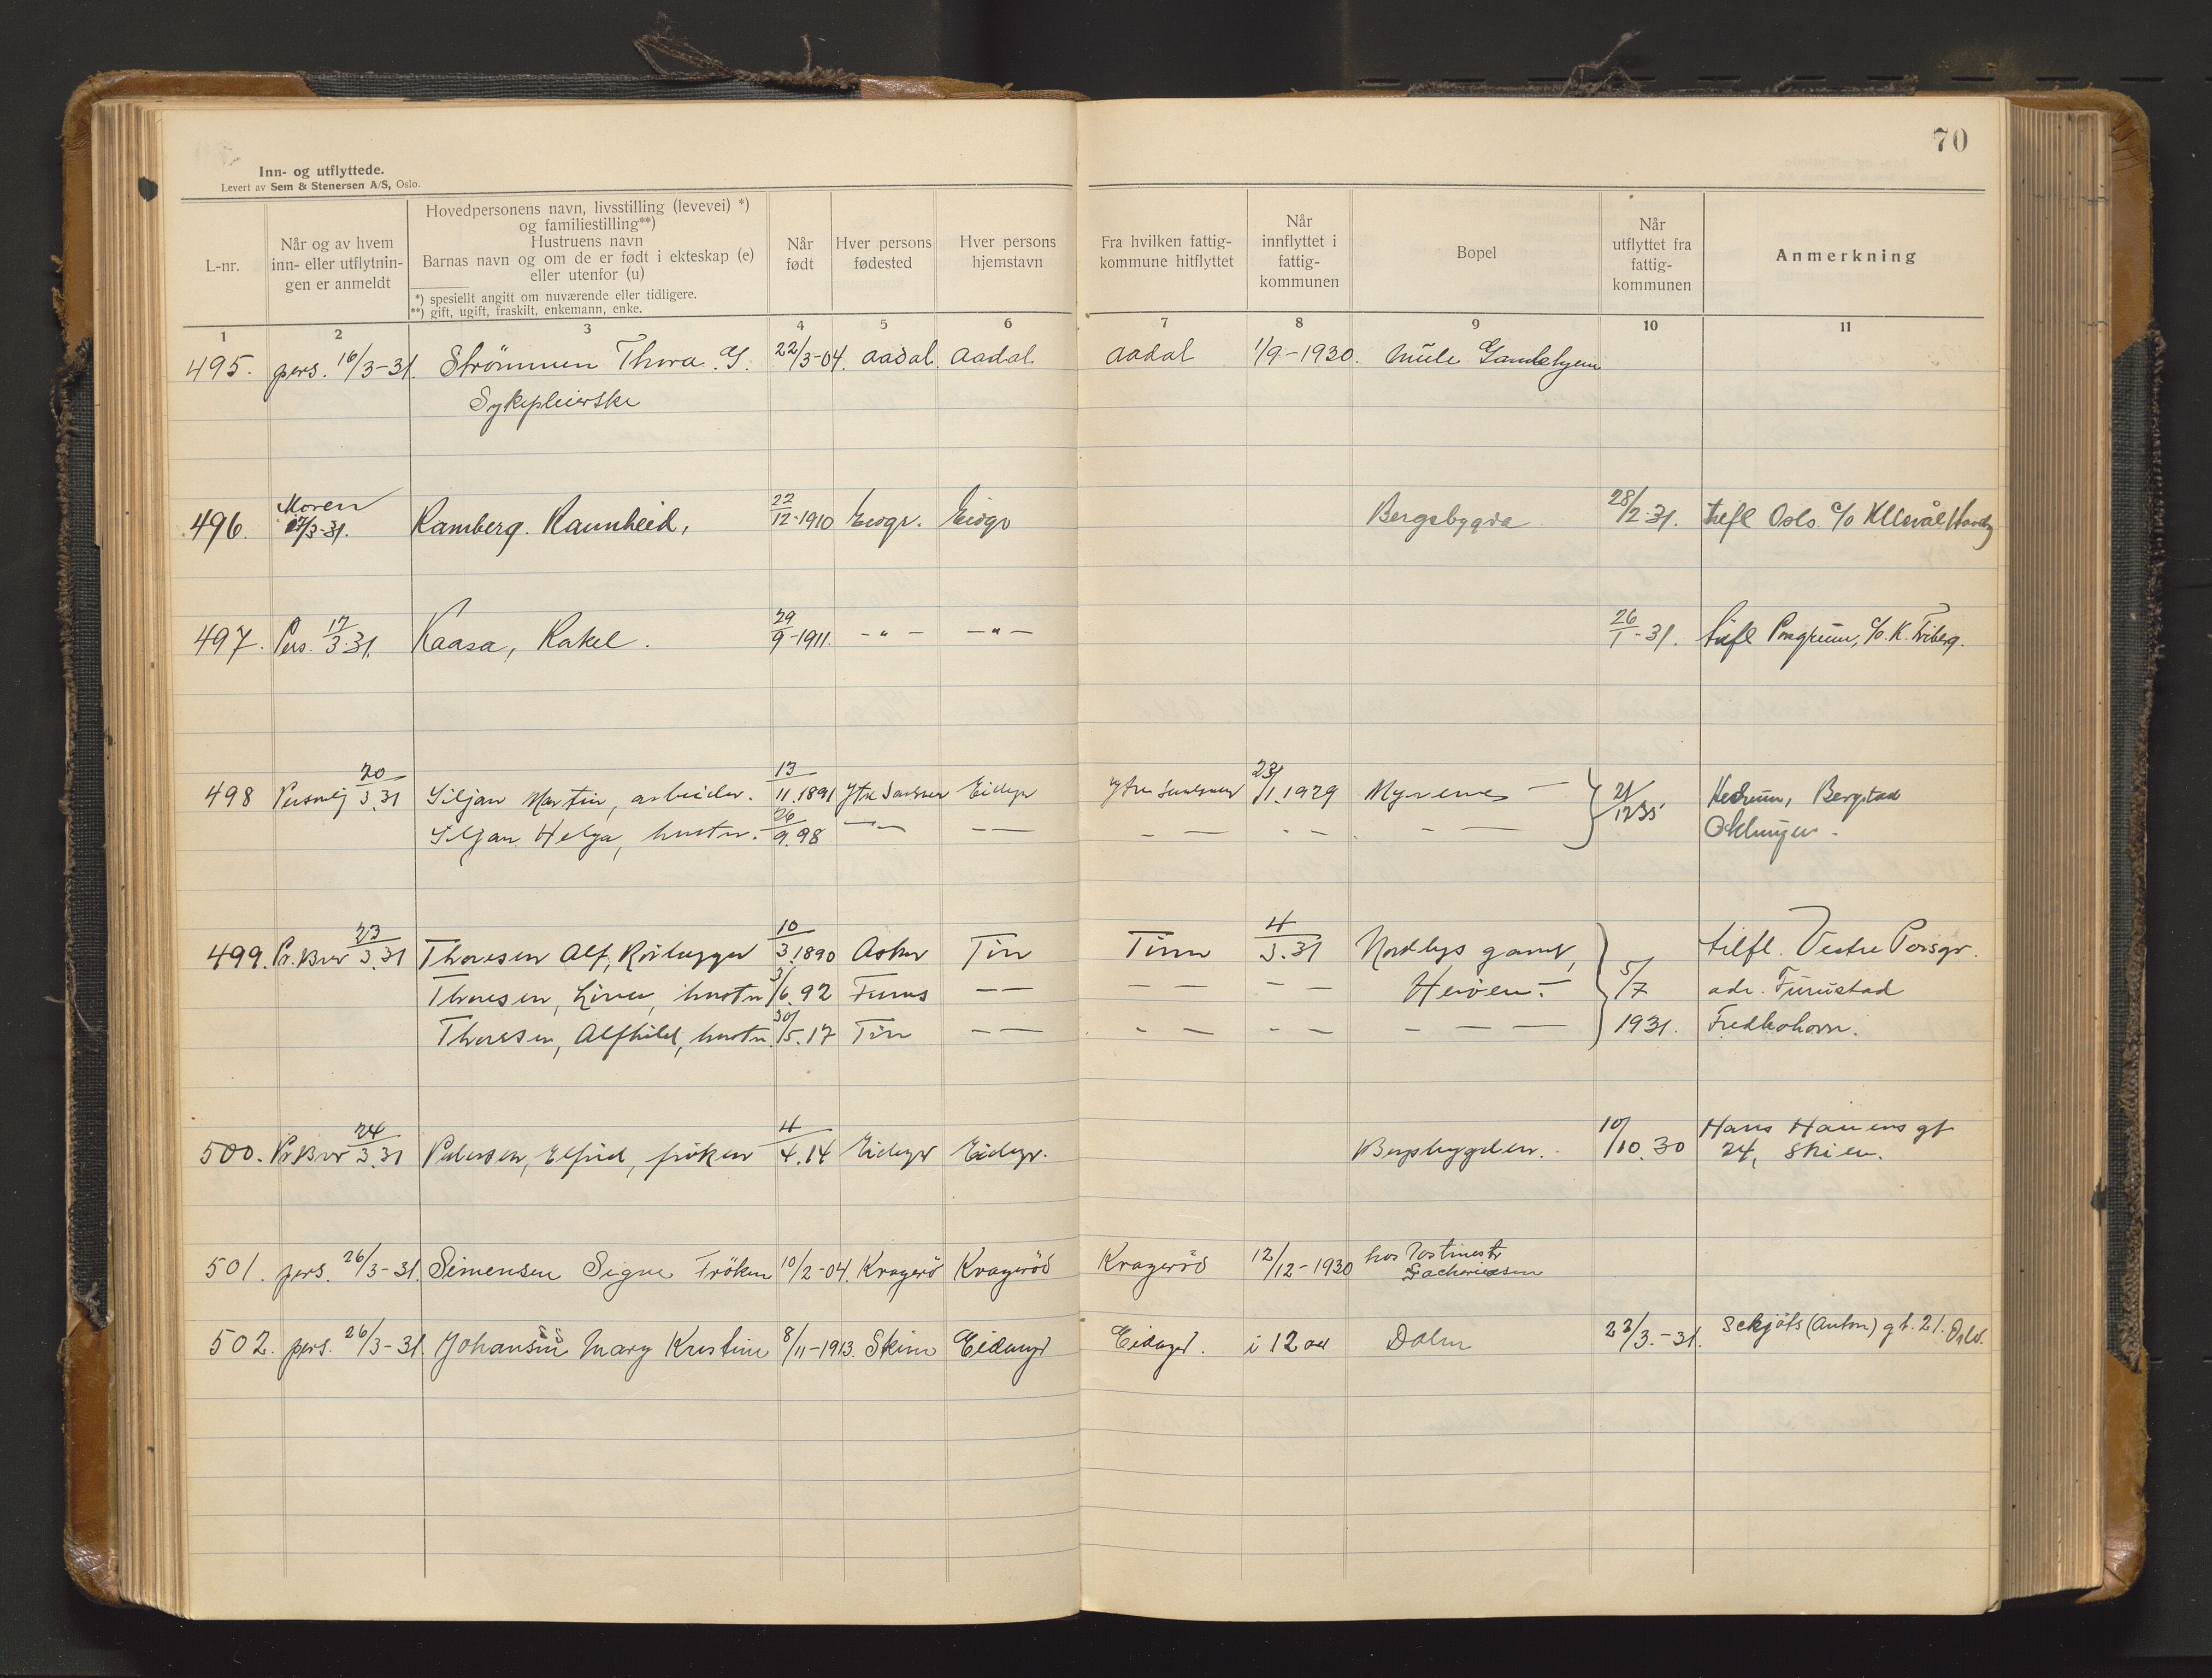 70
Inn- og utflyttede.
Levert av Sem & Stenersen A/S, Oslo.
L-nr.
Når og av hvem
inn- eller utflytnin-
gen er anmeldt
Hovedpersonens navn, livsstilling (levevei) *)
og familiestilling**)
Hustruens navn
Barnas navn og om de er født i ekteskap (e)
eller utenfor (u)
*) spesiellt angitt om nuværende eller tidligere.
**) gift, ugift, fraskilt, enkemann, enke.
Når
født
Hver persons
fødested
Hver persons
hjemstavn
Fra hvilken fattig-
kommune hitflyttet
Når
innflyttet i
fattig-
kommunen
Bopel
Når
utflyttet fra
fattig-
kommunen
Anmerkning
1 2 3 4 5 6 7 8 9 10 11
495. pers. 16/3-31. Strömmen Thora. G. 22/3-04. Aadal. Aadal. Aadal 1/9-1930. Mule Gamlehjem
Sykepleierske
496. Moren 17/3-31. Ramberg. Raunheid, 22/12-1910 Eidgr. Eidgr Bergsbygda 28/2-31. tilfl Oslo c/o Ullevål
497. Pers. 17/3.31. Kaasa, Rakel. 29/9-1911. -"- -"- 26/1-31. tilfl Porsgrunn, c/o. K. Friberg.
498 Personlig 20/3.31 Siljan Martin, arbeider. 13/11.1891 Ytre Sandsver Eidgr Ytre Sandsver 23/1.1929 Myrenes — 21/12 35 Hedrum, Bergstad
Siljan Helga, hustru. 26/9.98 — — — — — — Oklungen.
499. Pr. Brev 23/3.31 Thoresen Alf, Rörlegger 10/3.1890 Asker Tin Tinn 4/3.31 Nordbys gaard, 5/7 1931. tilfl. Vestre Porsgr.
Thoresen, hustru 3/6.92 Furnes — — — — Heröen. — adr. Furustad
Thoresen, Alfhild, hustru 30/5.17 Tin — — — — — — Fredkohavn.
500. Pr Brev 24/3.31 Pedersen, Elfrid, fröken 4/4.14 Eidgr Eidgr. Bergsbygden. 10/10.30 Hans Hauens gt
24, Skien.
501. pers. 26/3-31. Simensen Signe Fröken 10/2-04. Kragerö Kragerö Kragerö 12/12-1930 hos Postmestr
Zachariasen
502. pers. 26/3-31. Johansen Mary Kristine 8/11-1913. Skien Eidangr Eidangr. i 12 aar Dalen 22/3.-31. Schjöts (Anton) gt. 21. Oslo.